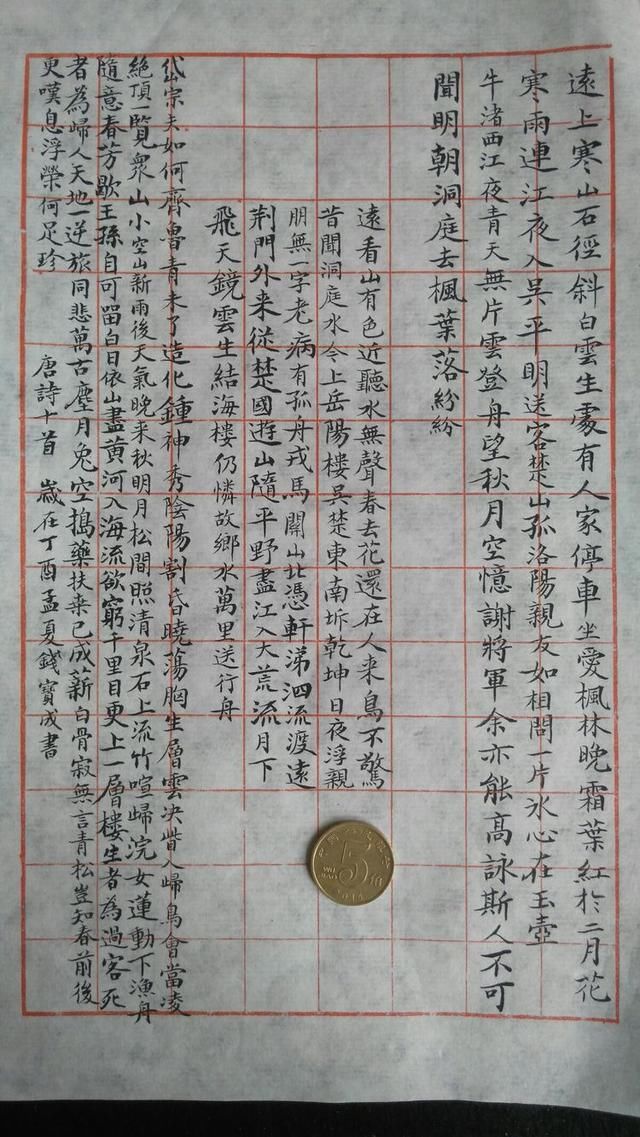 遠上寒山石徑斜白雲生處有人家停車坐愛楓林晚霜葉紅於二月花
寒雨連江夜入吳平明送客楚山孤洛陽親友如相問一片冰心在玉壺
牛渚西江夜青天無片雲登舟望秋月空憶謝將軍余亦能高詠斯人不可
聞明朝洞庭去楓葉落紛紛
遠看山有色近聽水無聲春去花還在人来鳥不驚
昔聞洞庭水今上岳陽樓吳楚東南坼乾坤日夜浮親
朋無一字老病有孤舟戎馬關山北憑軒涕泗流渡遠
荆門外来從楚國遊山隨平野盡江入大荒流月下
飛天鏡雲生結海樓仍憐故鄉水萬里送行舟
岱宗夫如何齊魯青未了造化鍾神秀陰陽割昏曉蕩胸生層雲决眥入歸鳥會當凌
絶頂一覽衆山小空山新雨後天氣晚来秋明月松間照清泉石上流竹喧歸浣女蓮動下漁舟
隨意春芳歇王孫自可留白日依山盡黄河入海流欲窮千里目更上一層樓生者為過客死
者為歸人天地一逆旅同悲萬古塵月兔空搗藥扶桒已成薪白骨寂無言青松豈知春前後
更嘆息浮榮何足珍
唐詩十首 歲在丁酉孟夏錢寶成書
5
角